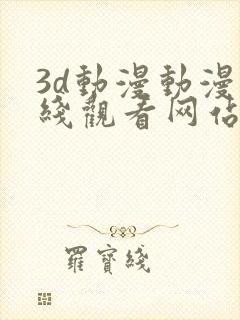 3d動漫動漫
綫觀看网佔
羅寳綫